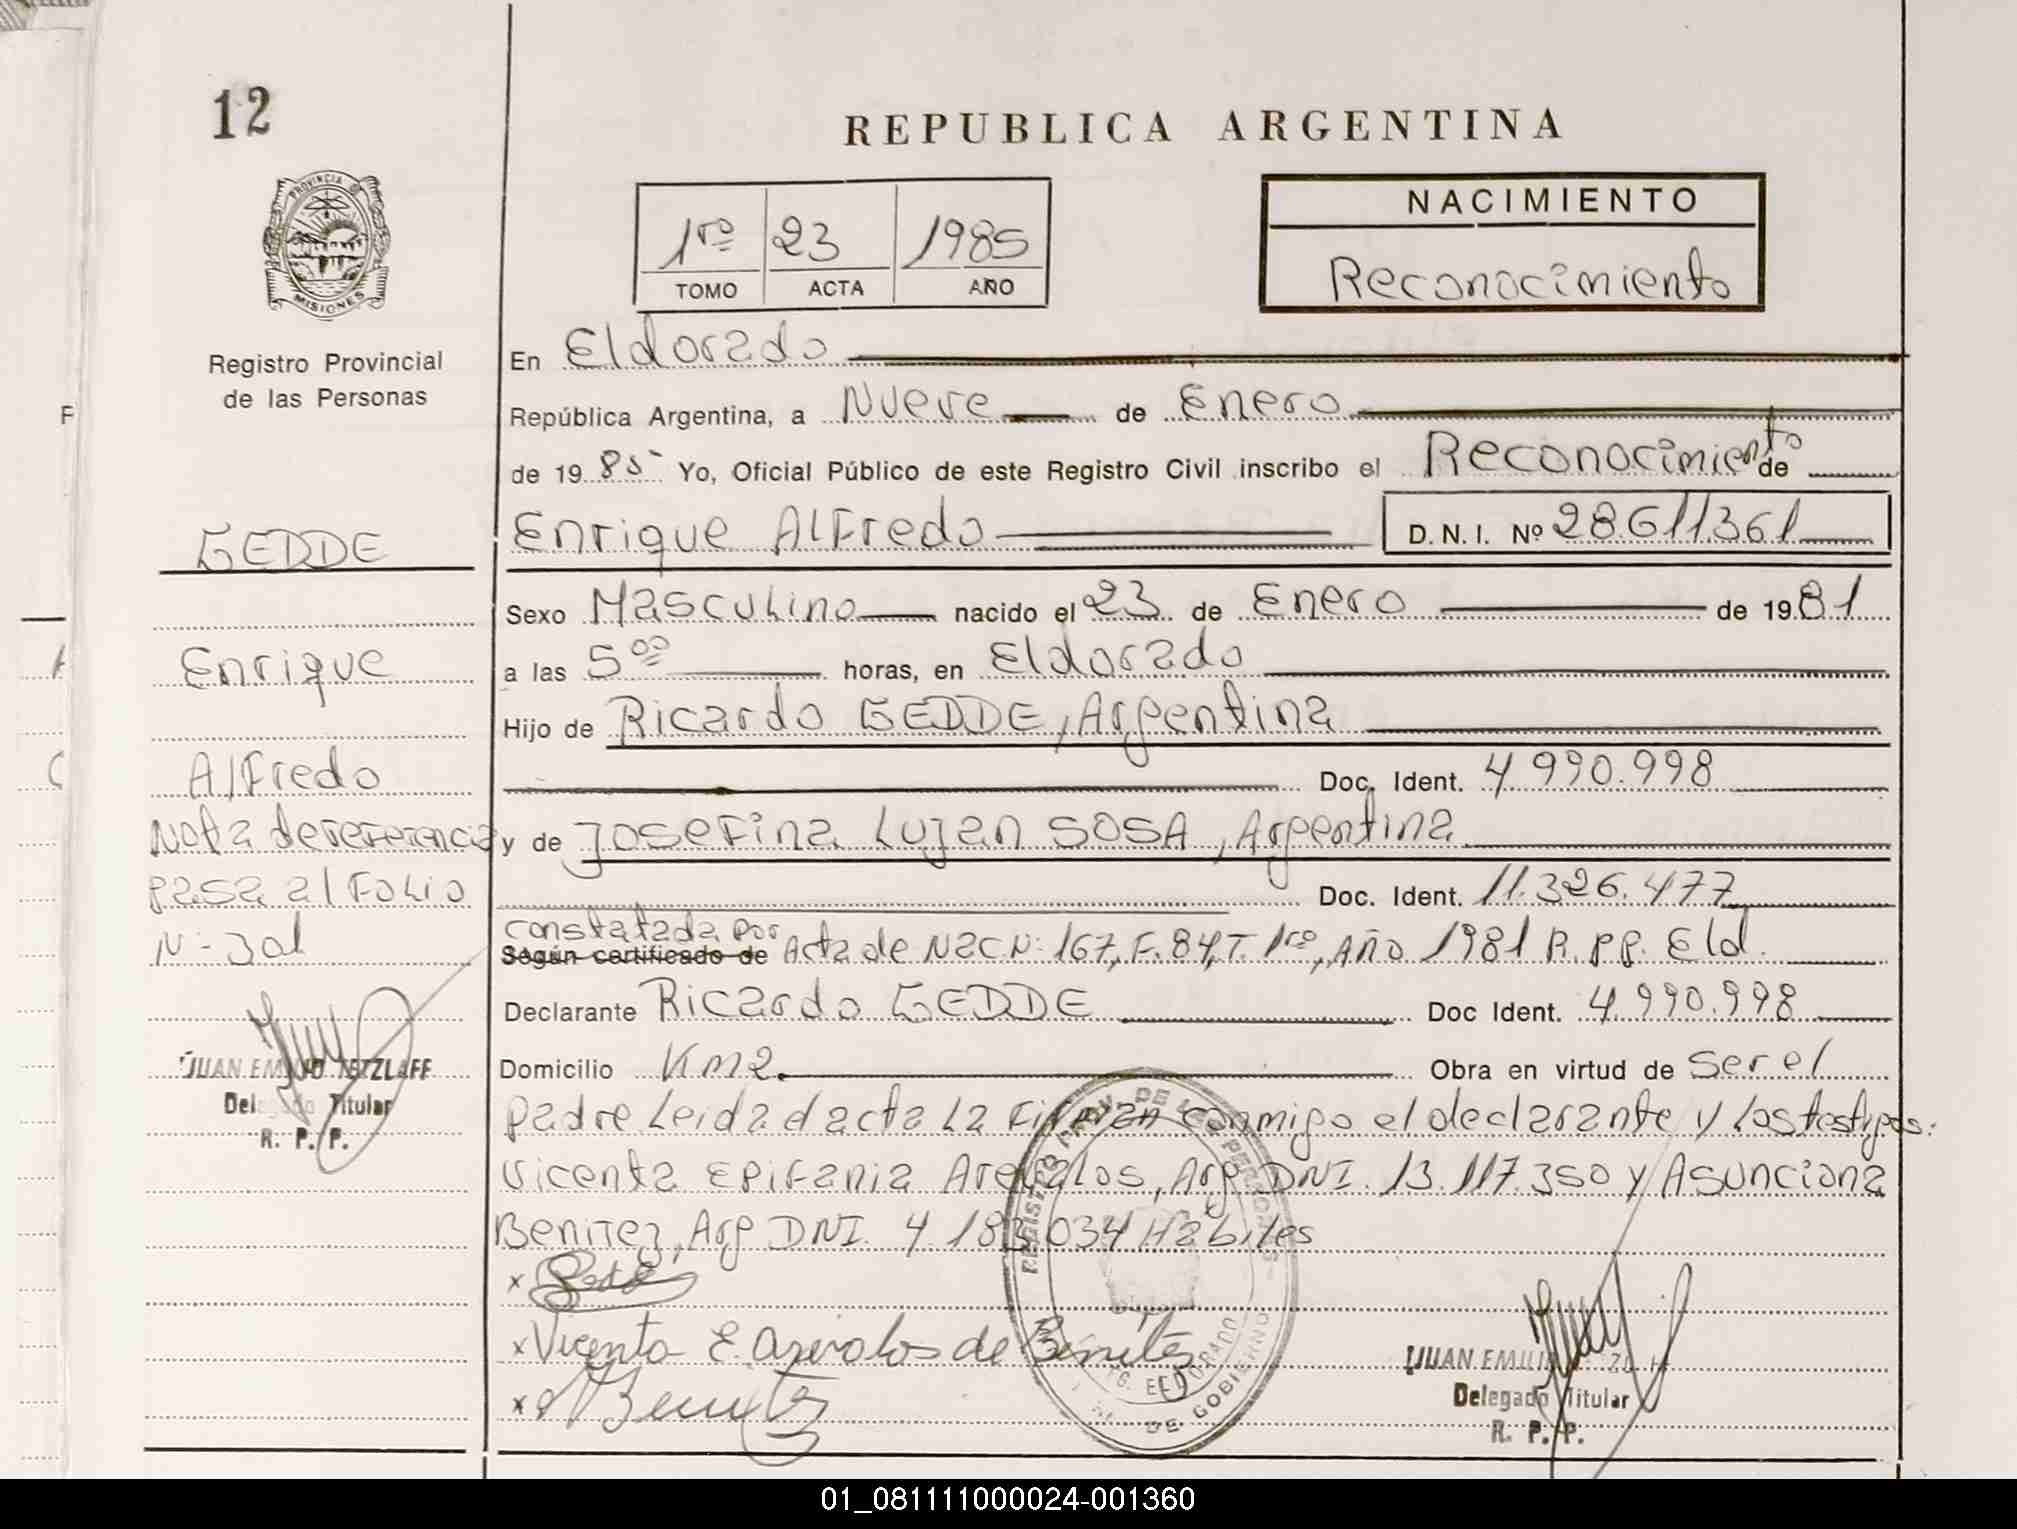 12
REPUBLICA ARGENTINA
PROVINCIA DE
MISIONES
Registro Provincial
de las Personas
1ro 23 1985
TOMO ACTA AÑO
NACIMIENTO
Reconocimiento
En Eldorado
República Argentina, a Nueve de Enero
de 1985 Yo, Oficial Público de este Registro Civil inscribo el Reconocimiento de
Enrique Alfredo D.N.I. Nº 28.611.361
GEDDE
Sexo Masculino nacido el 23 de Enero de 1981
Enrique
a las 5 00 horas, en Eldorado
Hijo de Ricardo GEDDE, Argentina
Alfredo
Doc. Ident. 4.990.998
Nota de referencia
y de Josefina Lujan SOSA, Argentina
pasa al Folio
Doc. Ident. 11.326.477
N- 301
constatada por
Según certificado de Acta de Nac N: 167, F. 84, T. 1ro, Año 1981 R.pp. Eld.
Declarante Ricardo GEDDE Doc Ident. 4.990.998
Domicilio Km2. Obra en virtud de ser el
JUAN EMILIO TETZLAFF
Delegado Titular
R. P. P.
padre Leida d acta La Firman conmigo el declarante y Los testigos:
Vicenta Epifania Arevalos, Arg DNI. 13.117.350 y Asunciona
Benitez, Arg DNI. 4.183.034 Habiles
x Gedde
x Vicenta E. Arevalos de Benitez
x A Benitez
REGISTRO PROV. DE LAS PERSONAS
ELDORADO
M. DE GOBIERNO
JUAN EMILIO
Delegado Titular
R. P. P.
01_081111000024-001360